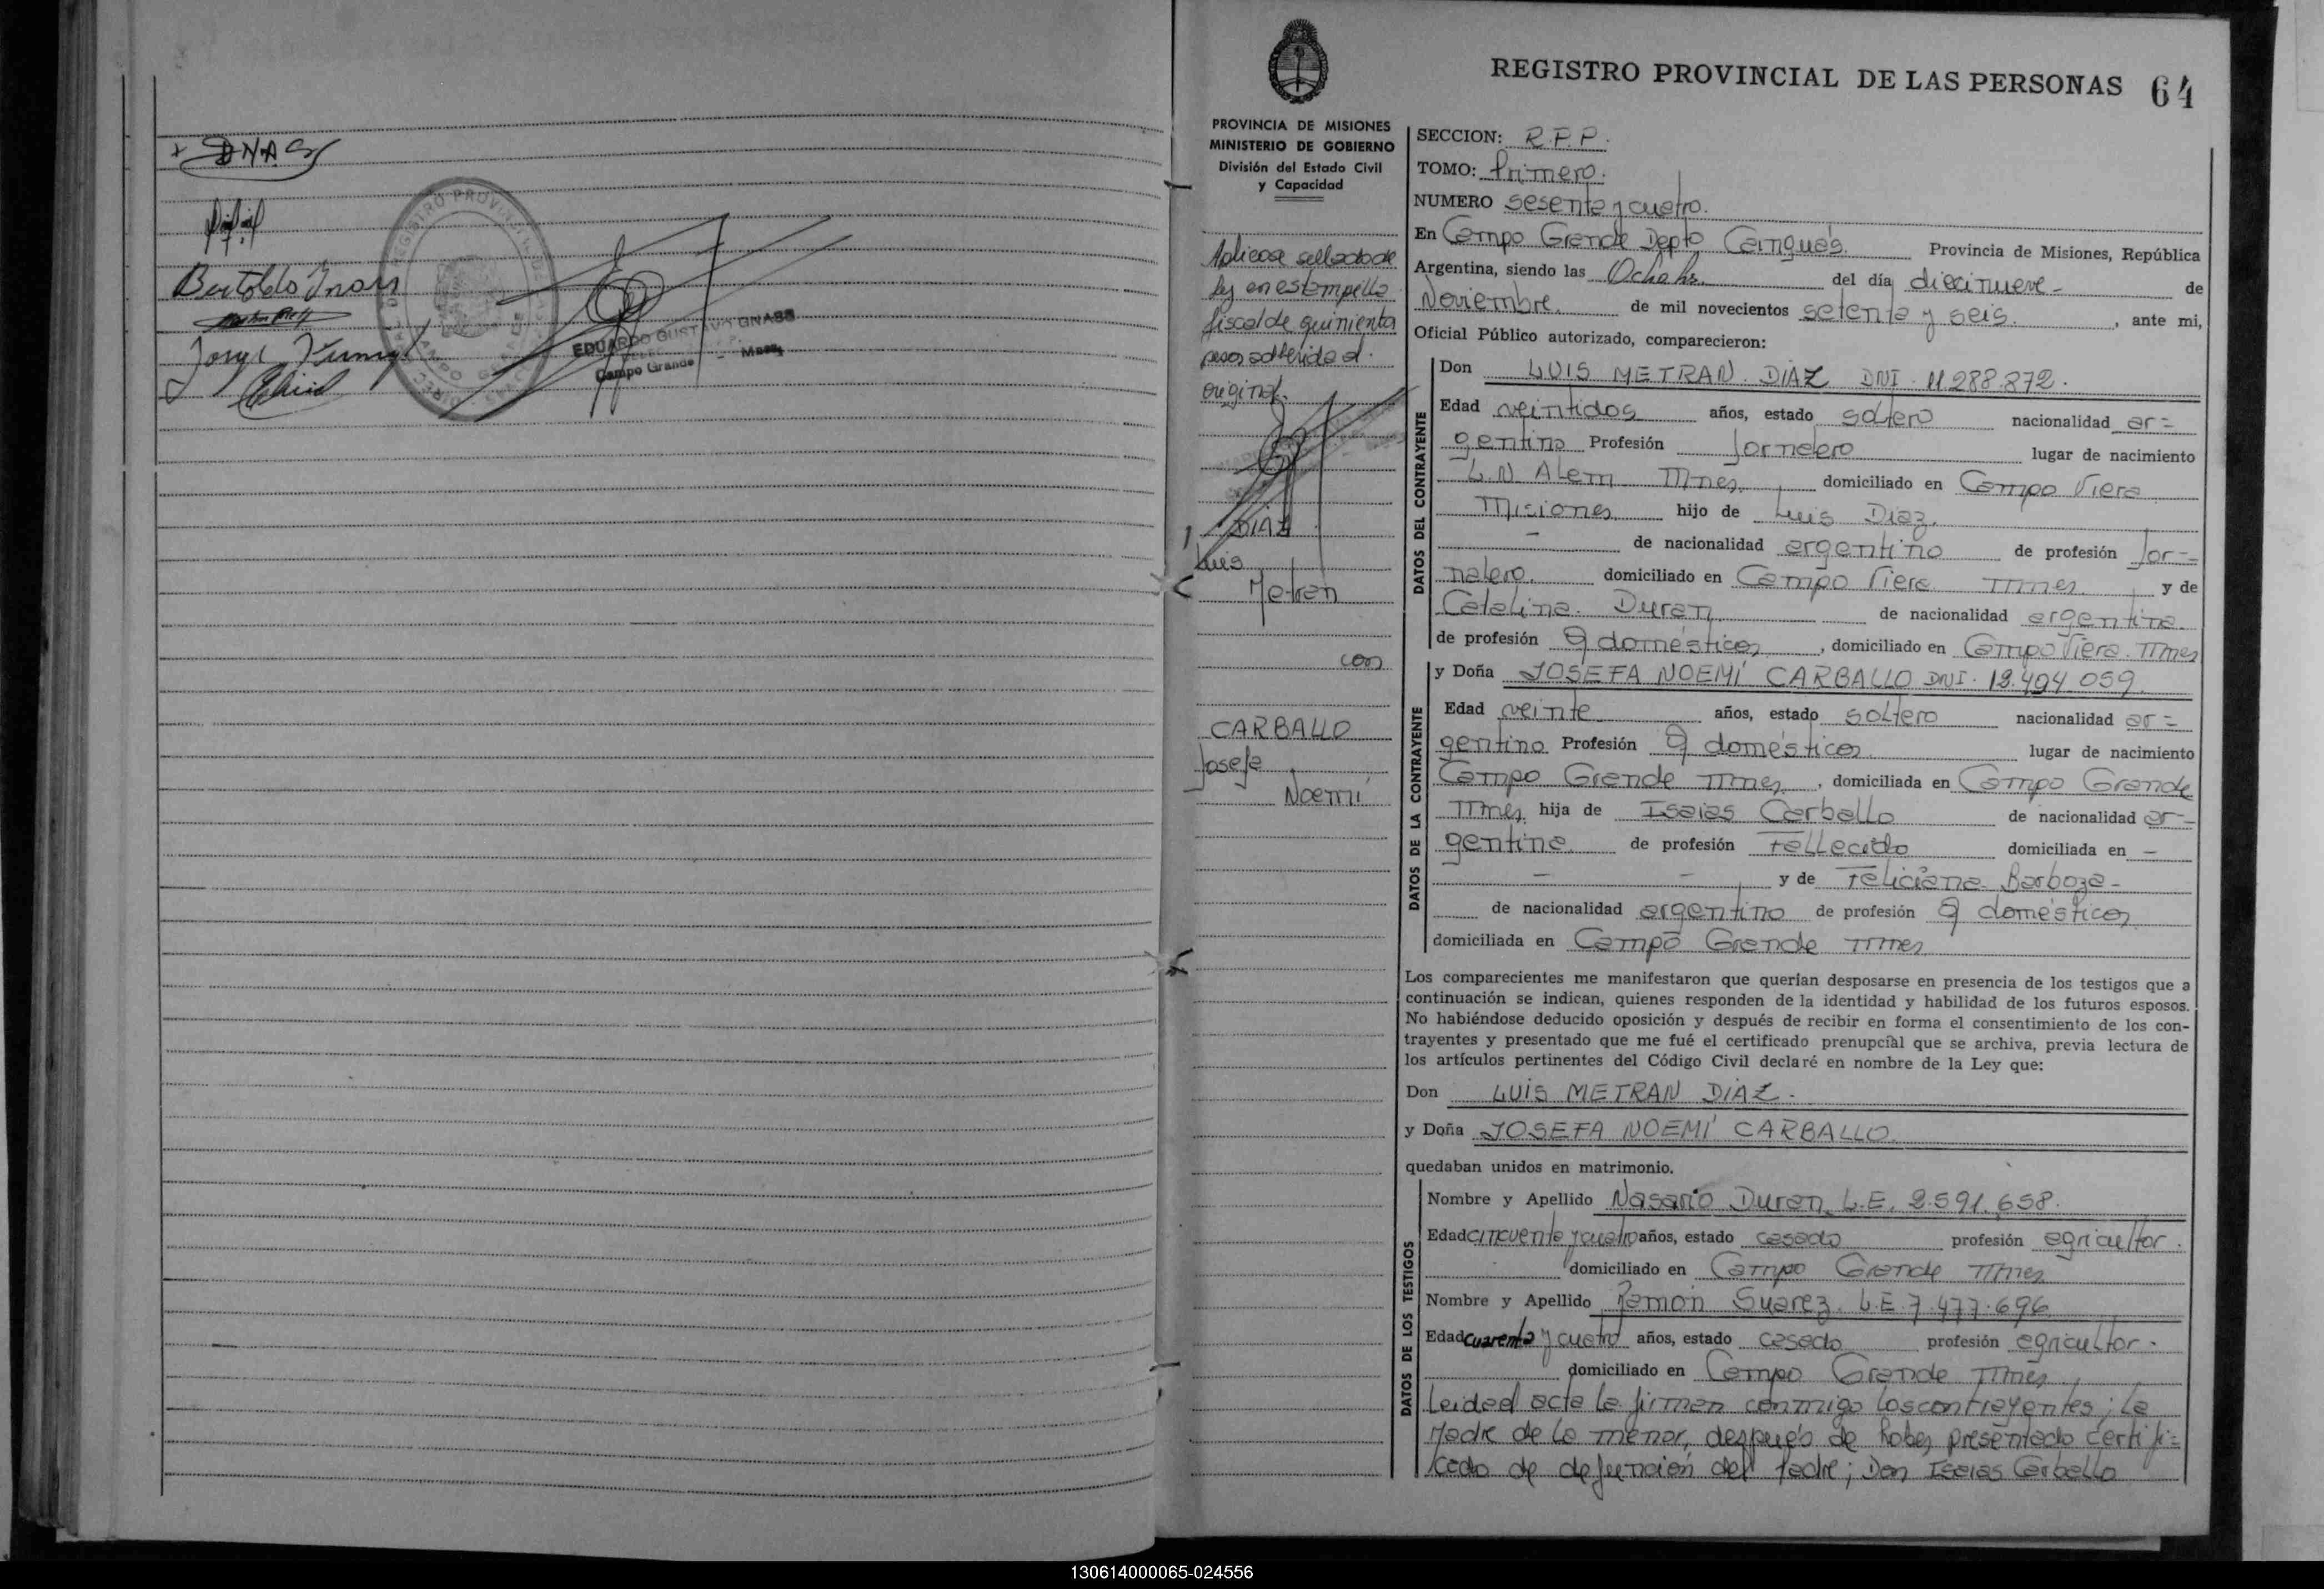 Bertoldo
Jorge
REGISTRO PROVINCIAL
CAMPO GRANDE
EDUARDO GUSTAVO GNASS
Campo Grande - Mnes.
REGISTRO PROVINCIAL DE LAS PERSONAS 64
PROVINCIA DE MISIONES
MINISTERIO DE GOBIERNO
División del Estado Civil
y Capacidad
Aplicose sellado de
ley en estampilla
fiscal de quinientos
pesos adherida al
original.
DIAZ
Luis
Metran
con
CARBALLO
Josefa
Noemí
SECCION: R.P.P.
TOMO: Primero.
NUMERO sesenta y cuatro.
En Campo Grande Depto Cainguás Provincia de Misiones, República
Argentina, siendo las Ocho hs. del día diecinueve - de
Noviembre. de mil novecientos setenta y seis. , ante mi,
Oficial Público autorizado, comparecieron:
DATOS DEL CONTRAYENTE
Don LUIS METRAN DIAZ DNI. 11.288.872.
Edad veintidos años, estado soltero nacionalidad ar=
gentina Profesión Jornalero lugar de nacimiento
L.N. Alem Mnes. domiciliado en Campo Viera
Misiones hijo de Luis Diaz.
- de nacionalidad argentino de profesión Jor-=
nalero. domiciliado en Campo Viera Mnes. y de
Catalina Duran de nacionalidad argentina
de profesión Q domésticos , domiciliado en Campo Viera. Mnes
DATOS DE LA CONTRAYENTE
y Doña JOSEFA NOEMÍ CARBALLO DNI. 12.494.059.
Edad veinte años, estado soltero nacionalidad ar=
gentino Profesión Q domésticos lugar de nacimiento
Campo Grande Mnes , domiciliada en Campo Grande
Mnes. hija de Isaias Carballo de nacionalidad ar-
gentina. de profesión Fallecido domiciliada en -
- - y de Feliciana Barboza -
de nacionalidad argentino de profesión Q domésticos
domiciliada en Campo Grande Mnes
Los comparecientes me manifestaron que querían desposarse en presencia de los testigos que a
continuación se indican, quienes responden de la identidad y habilidad de los futuros esposos.
No habiéndose deducido oposición y después de recibir en forma el consentimiento de los con-
trayentes y presentado que me fué el certificado prenupcial que se archiva, previa lectura de
los artículos pertinentes del Código Civil declaré en nombre de la Ley que:
Don LUIS METRAN DIAZ.
y Doña JOSEFA NOEMÍ CARBALLO
quedaban unidos en matrimonio.
DATOS DE LOS TESTIGOS
Nombre y Apellido Nasario Duran L.E. 2.591.658.
Edad cincuenta y cuatro años, estado casado profesión agricultor.
domiciliado en Campo Grande Mnes
Nombre y Apellido Ramón Suarez L.E. 7.477.696
Edad cuarenta y cuatro años, estado casado profesión agricultor.
domiciliado en Campo Grande Mnes
Leidad acta la firman conmigo los contrayentes; la
Madre de la menor, después de haber presentado certifi=
cado de defunción del Padre; Don Isaias Carballo
130614000065-024556